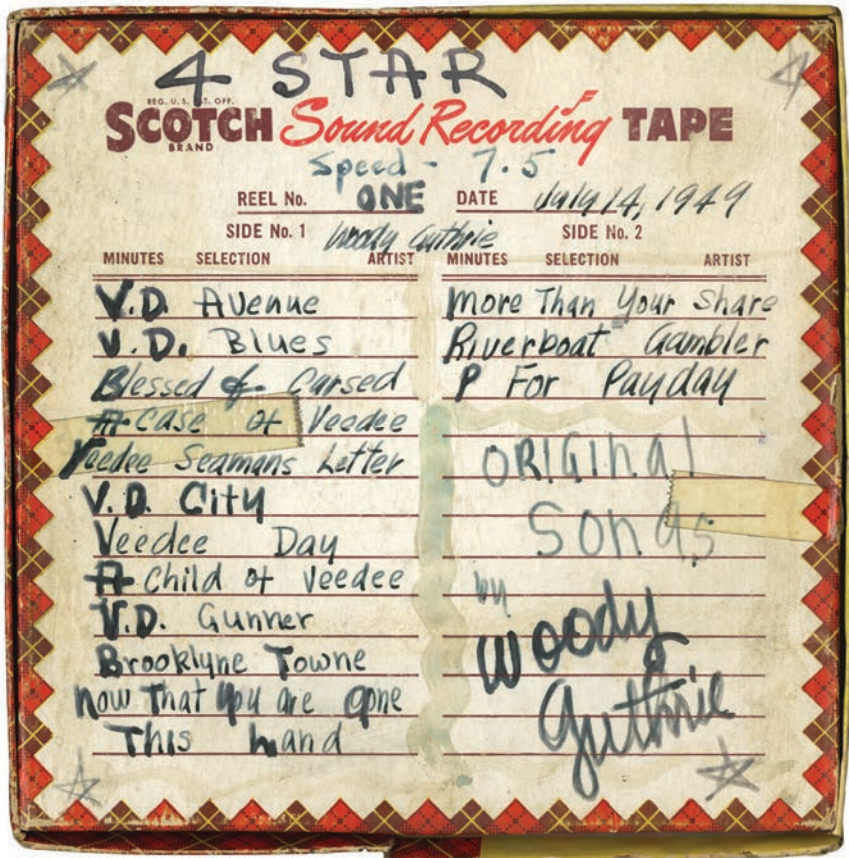 4 STAR
REG. U.S. PAT. OFF.
SCOTCH Sound Recording TAPE
BRAND
Speed - 7.5
REEL No. ONE DATE July 14, 1949
SIDE No. 1 Woody Guthrie SIDE No. 2
MINUTES SELECTION ARTIST MINUTES SELECTION ARTIST
V.D. Avenue
V.D. Blues
Blessed & Cursed
A Case of Veedee
Veedee Seamans Letter
V.D. City
Veedee Day
A Child of Veedee
V.D. Gunner
Brooklyne Towne
now That You are gone
This Land
More Than Your Share
Riverboat Gambler
P For Payday
ORIGINAL
SONGS
by
Woody
Guthrie